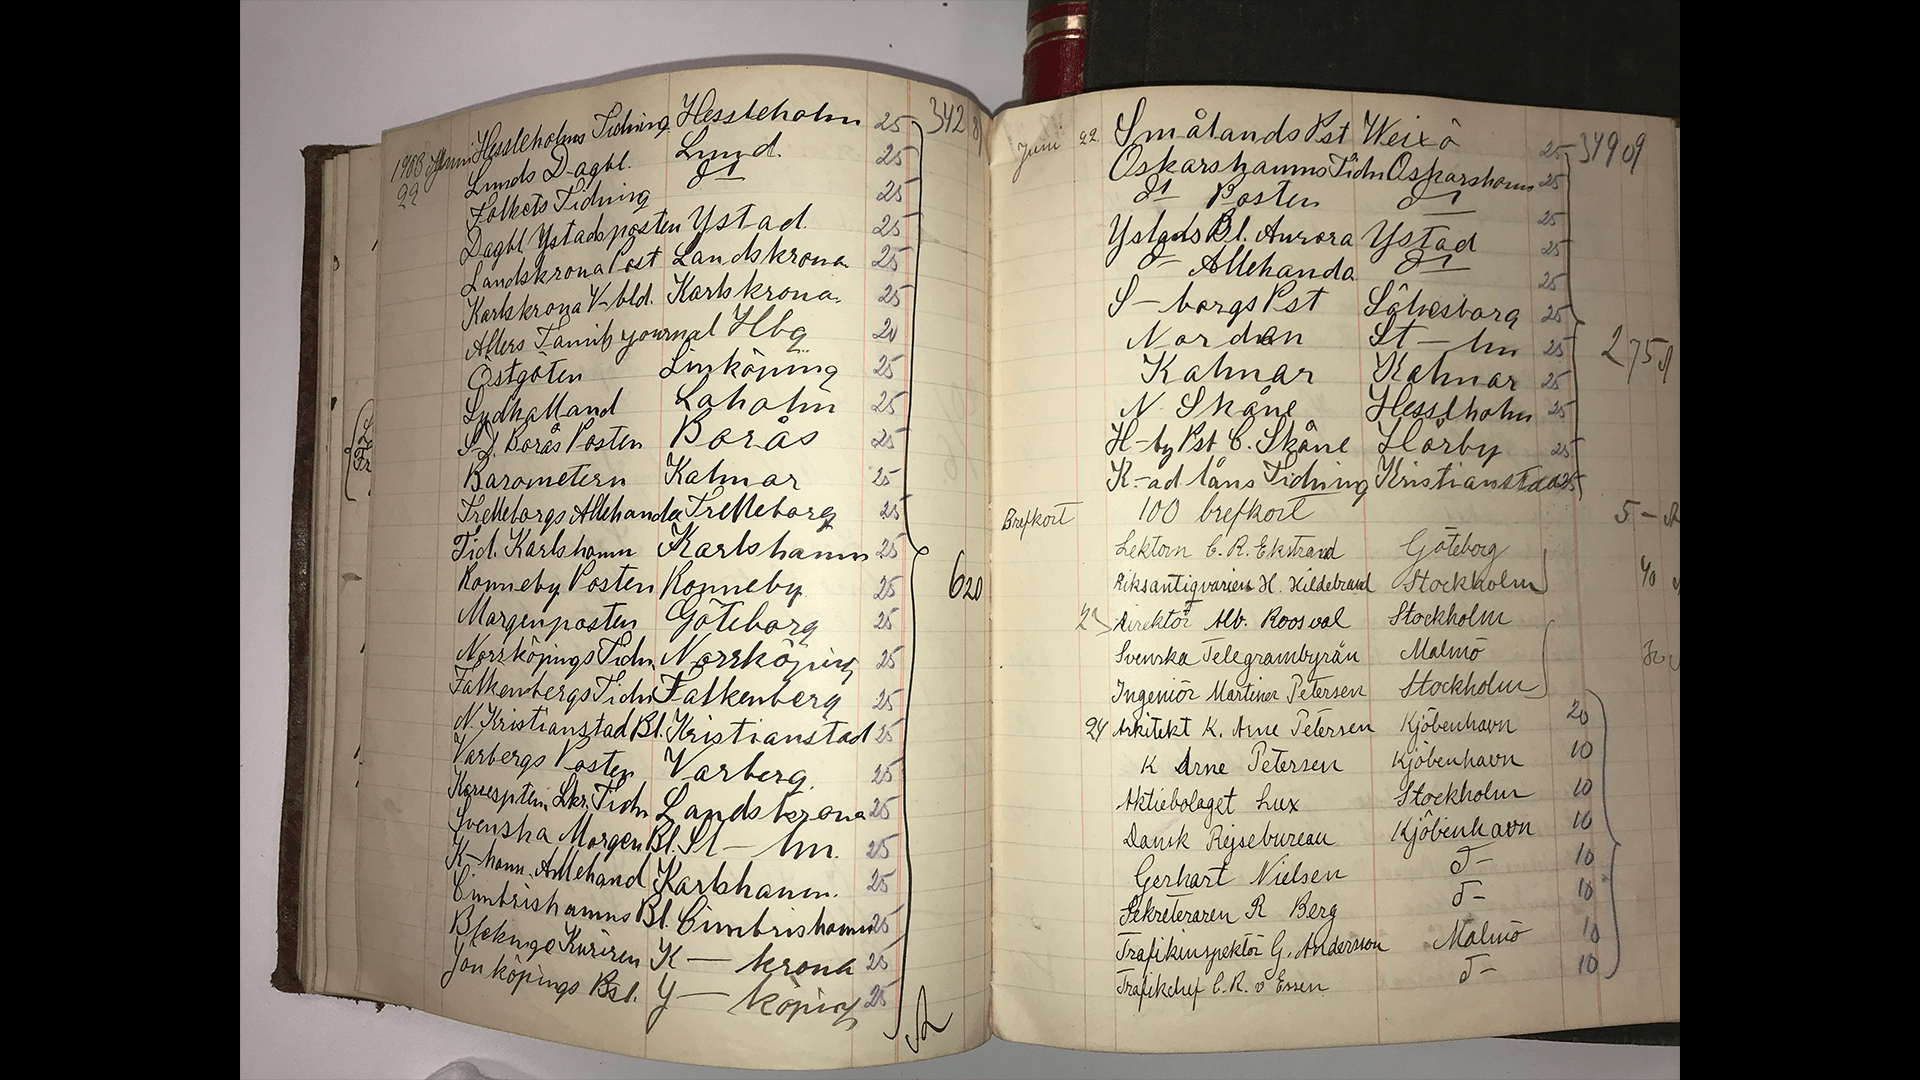 1903 Juni Hessleholms Tidning Hessleholm 25 342
22 Lunds Dagbl. Lund. 25
Folkets Tidning 25
Dagbl Ystadsposten Ystad. 25
Landskrona Post Landskrona 25
Karlskrona V-bld. Karlskrona. 25
Allers Familjjournal Hbg 20
Östgöten Linköping 25
Sydhalland Laholm 25
Borås Posten Borås 25
Barometern Kalmar 25
Trelleborgs Allehanda Trelleborg 25
Tid. Karlshamn Karlshamn 25
Ronneby Posten Ronneby 25 620
Morgenposten Göteborg 25
Norrköpings Tidn Norrköping 25
Falkenbergs Tidn Falkenberg 25
N. Kristianstad Bl. Kristianstad 25
Varbergs Posten Varberg 25
Lkr. Tidn Landskrona 25
Svenska Morgen Bl. St - lm. 25
K-hamn. Allehand Karlshamn. 25
Cimbrishamns Bl. Cimbrishamn 25
Blekinge Kuriren K - krona 25
Jönköpings J - köping 25
Juni 22 Smålands Pst Weixö 25 349 09
Oskarshamns Tidn Oskarshamn 25
Posten 25
Ystads Bl. Aurora Ystad 25
Allehanda 25
S - borgs Pst Sölvesborg 25
Norden St - lm 25 275
Kalmar Kalmar 25
N. Skåne Hessleholm 25
H-by Pst C. Skåne Hörby 25
K-ad läns Tidning Kristianstad 25
Brefkort 100 brefkort 5 -
Lektorn C. R. Ekstrand Göteborg
Riksantiqvarien H. Hildebrand Stockholm 40
23 Direktör Alb. Roosval Stockholm
Svenska Telegrambyrån Malmö
Ingeniör Martiner Petersen Stockholm
24 Arkitekt K. Arne Petersen Kjöbenhavn 20
K Arne Petersen Kjöbenhavn 10
Aktiebolaget Lux Stockholm 10
Dansk Rejsebureau Kjöbenhavn 10
Gerhart Nielsen 10
Sekreteraren R Berg 10
Trafikinspektör G. Andersson Malmö 10
Trafikchef C. R. v Essen 10